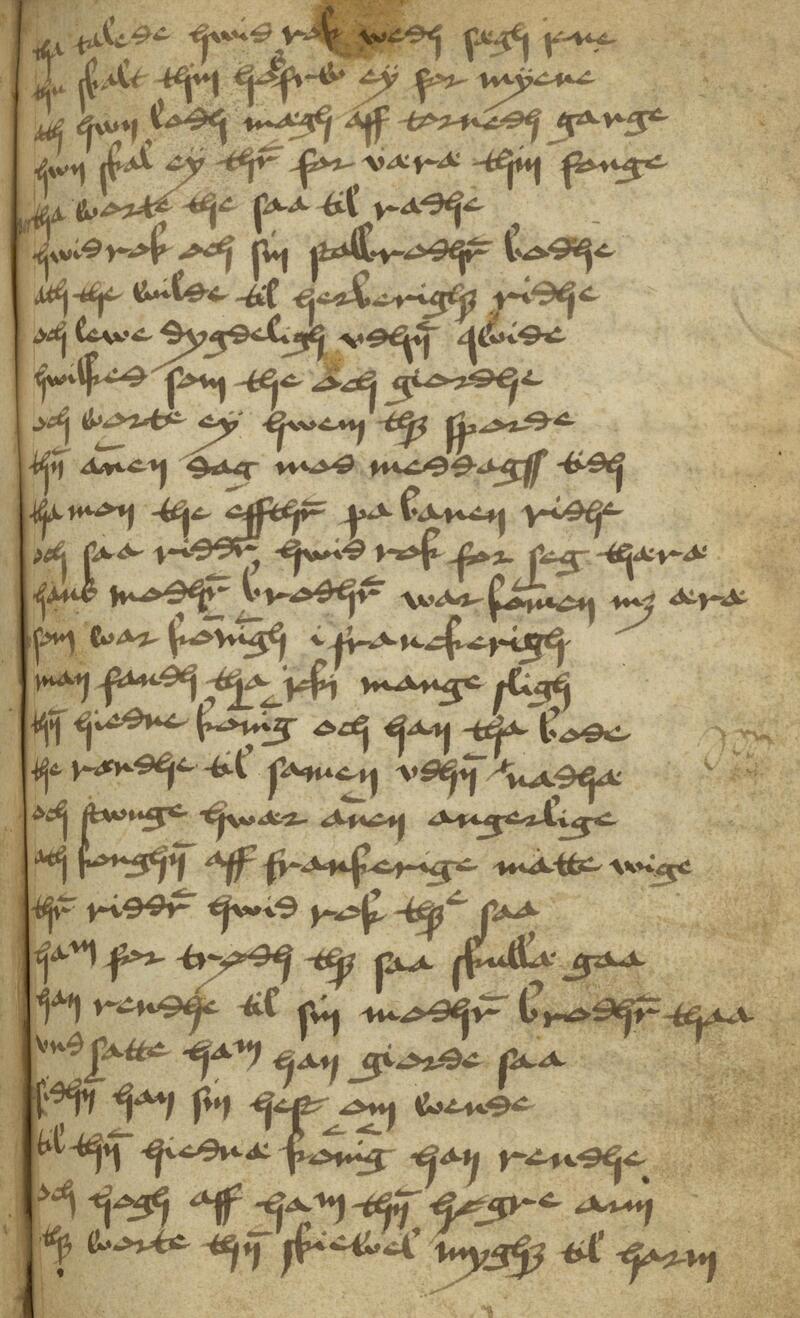 tha talede hwid rok wedh sægh iene
thu skalt thin hosfrw ey for myene
ath hwn lodh mægh aff tornedh gange
hwn skal ey thr̄ for væræ thin fange
tha worte the saa til radhe
hwid rok och sin stalbrodhr̄ bodhe
ath the wilde til herberighꝫ ridhe
och lewe dygdeligh vdhn̄ qwide
hwilked som the och giordhe
och worte ey hwem thꝫ sporde
thn̄ an̄en dag mod meddagss tidh
tha mon the effthr̄ pa banen ridhe
och saa riddr̄ hwid rok for seg thæræ
hans modhr̄ brodhr̄ war kom̄en mꝫ æræ
som war kon̄igh i franckerigh
man fandh tha icki mange sligh
thn̄ hiedne kon̄ig och han tha bode
the rændhe til samen vdhn̄ nadhæ
och stunge hwær an̄en angerlige
ath konghn̄ aff frankerige matte wige
thr̄ riddr̄ hwid rok thꝫ saa
ham for trydh thꝫ saa skullæ gaa
han rendhe til sin modhr̄ brodhr̄ thaa
vnd satte ham han giorde saa
sidhn̄ han sin hest om wende
til thn̄ hiednæ kon̄ig han rendhe
och hogh aff ham thn̄ høgre arm
thꝫ worte thn̄ skiewel myghꝫ til harm